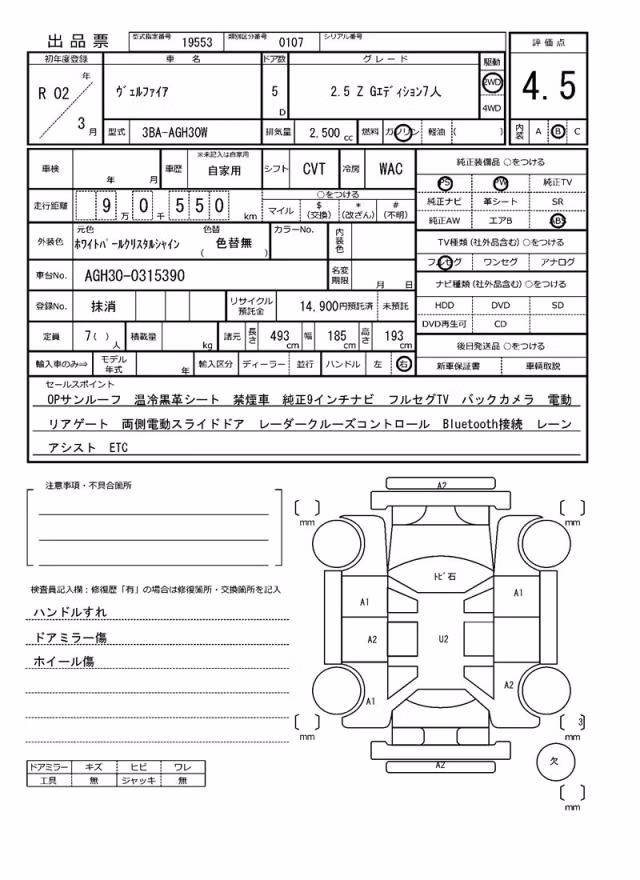 出品票
型式指定番号 19553 類別区分番号 0107 シリアル番号
初年度登録 車名 ドア数 グレード 駆動 評価点
R 02 年 3 月
ヴェルファイア 5 D 2.5 Z Gエディション7人 2WD 4WD 4.5
型式 3BA-AGH30W 排気量 2,500 cc 燃料 ガソリン 軽油 ( ) 内装 A B C
車検 年 月 車歴 ※未記入は自家用 自家用 シフト CVT 冷房 WAC
走行距離 9 万 0 千 5 5 0 km
○をつける
マイル $ (交換) * (改ざん) # (不明)
外装色 元色 ホワイトパールクリスタルシャイン 色替 ( 色替無 ) カラーNo. 内装色
車台No. AGH30-0315390 名変期限 月 日
登録No. 抹消 リサイクル預託金 14,900円預託済 未預託
定員 7( ) 人 積載量 kg 諸元 長さ 493 cm 幅 185 cm 高さ 193 cm
輸入車のみ⇨ モデル年式 年 輸入区分 ディーラー 並行 ハンドル 左 右
純正装備品 ○をつける
PS PW 純正TV
純正ナビ 革シート SR
純正AW エアB ABS
TV種類 (社外品含む) ○をつける
フルセグ ワンセグ アナログ
ナビ種類 (社外品含む) ○をつける
HDD DVD SD
DVD再生可 CD
後日発送品 ○をつける
新車保証書 車輌取説
セールスポイント
OPサンルーフ 温冷黒革シート 禁煙車 純正9インチナビ フルセグTV バックカメラ 電動
リアゲート 両側電動スライドドア レーダークルーズコントロール Bluetooth接続 レーン
アシスト ETC
注意事項・不具合箇所
検査員記入欄：修復歴「有」の場合は修復箇所・交換箇所を記入
ハンドルすれ
ドアミラー傷
ホイール傷
ドアミラー キズ ヒビ ワレ
工具 無 ジャッキ 無
A2
mm
mm
トビ石
A1
A1
A2
U2
A1
A2
mm
3
mm
A2
欠
mm